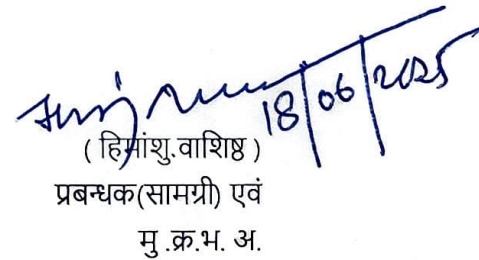 18/06/2025
( हिमांशु.वाशिष्ठ )
प्रबन्धक(सामग्री) एवं
मु .क्र.भ. अ.